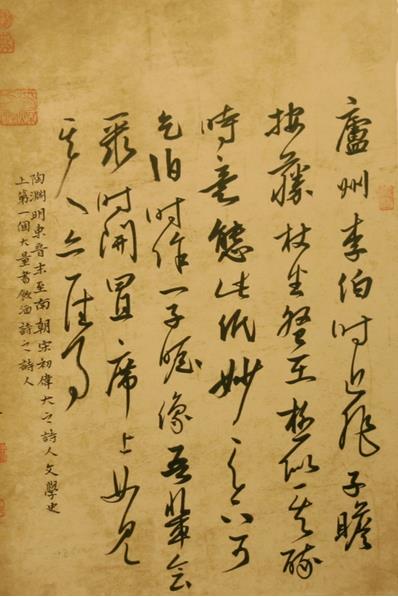 廬州李伯時近作子瞻
按藤杖坐盤石極似其醉
時意態此紙妙天下可
乞伯時作一子瞻像吾輩會
聚時開置席上如見
其人亦一佳事
陶淵明東晉末至南朝宋初偉大之詩人文學史
上第一個大量書飲酒詩之詩人